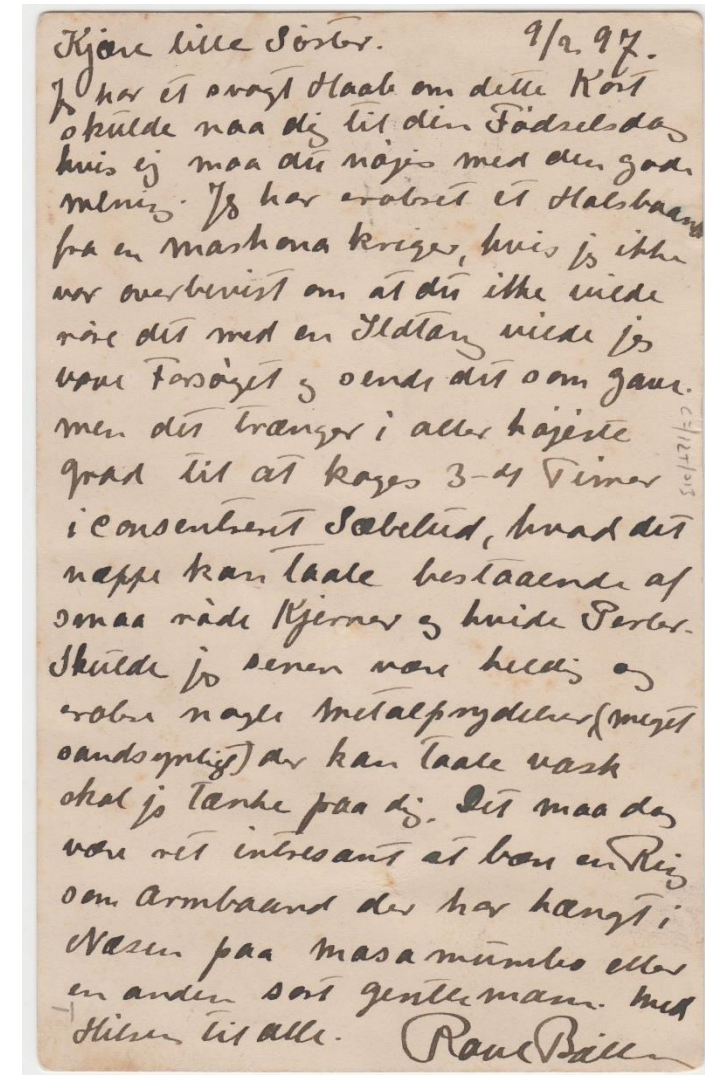 Kjære lille Søster. 9/2 97.
Jg har et svagt Haab om dette Kort
skulde naa dig til din Fødselsdag
hvis ej maa du nøjes med den gode
mening. Jg har erobret et Halsbaand
fra en mashona kriger, hvis jg ikke
var overbevist om at du ikke vilde
røre det med en Ildtang vilde jeg
vove Forsøget og sende det som gave.
men det trænger i aller højeste
grad til at koges 3-4 Timer
i consentreret Sæbelud, hvad det
næppe kan taale bestaaende af
smaa røde Kjerner og hvide Perler.
Skulde jg senere være heldig og
erobre nogle metalprydelser (meget
sandsynligt) der kan taale vask
skal jg tænke paa dig. Det maa dog
være ret intresant at bære en Ring
som Armbaand der har hængt i
Næsen paa masamumbo eller
en anden sort gentlemann. Med
Hilsen til alle.